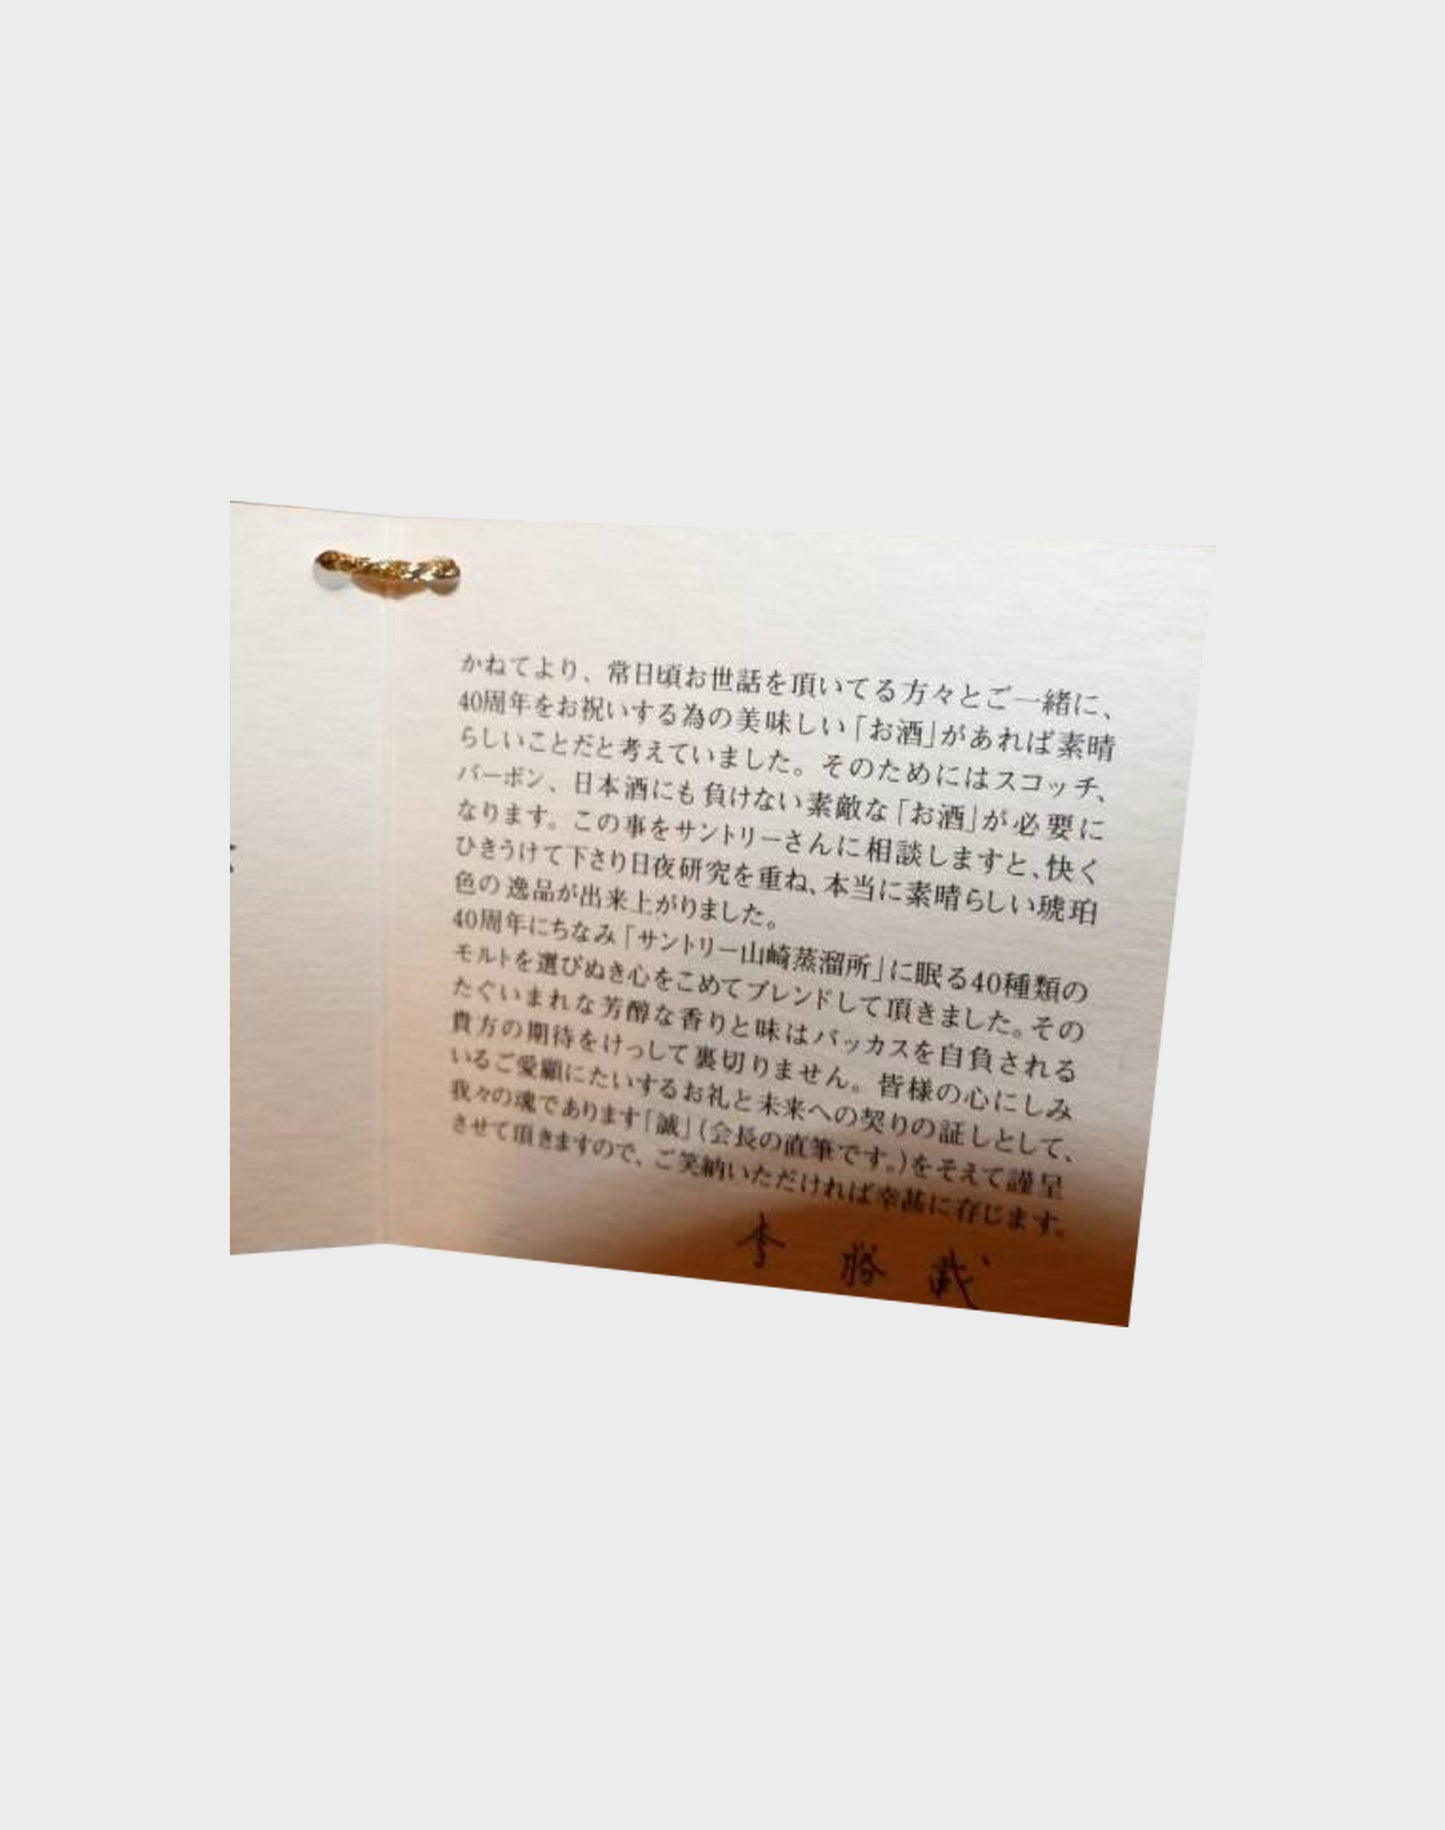 かねてより、常日頃お世話を頂いてる方々とご一緒に、
40周年をお祝いする為の美味しい「お酒」があれば素晴
らしいことだと考えていました。そのためにはスコッチ、
バーボン、日本酒にも負けない素敵な「お酒」が必要に
なります。この事をサントリーさんに相談しますと、快く
ひきうけて下さり日夜研究を重ね、本当に素晴らしい琥珀
色の逸品が出来上がりました。
40周年にちなみ「サントリー山崎蒸溜所」に眠る40種類の
モルトを選びぬき心をこめてブレンドして頂きました。その
たぐいまれな芳醇な香りと味はバッカスを自負される
貴方の期待をけっして裏切りません。皆様の心にしみ
いるご愛顧にたいするお礼と未来への契りの証しとして、
我々の魂であります「誠」(会長の直筆です。)をそえて謹呈
させて頂きますので、ご笑納いただければ幸甚に存じます。
李 勝 載